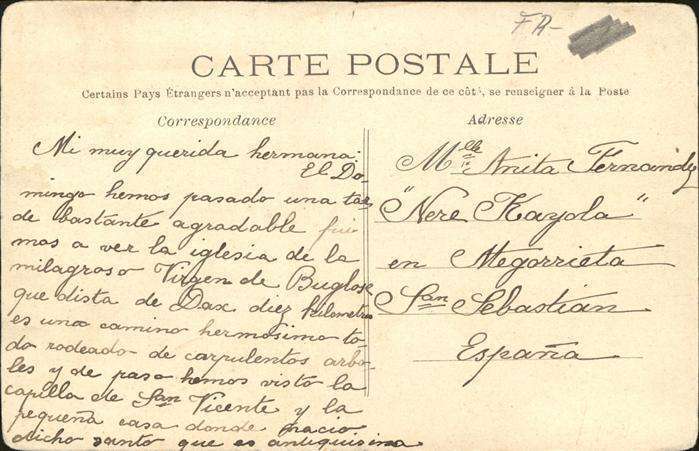 FA-
CARTE POSTALE
Certains Pays Étrangers n'acceptant pas la Correspondance de ce côté, se renseigner à la Poste
Correspondance
Mi muy querida hermana:
El Do-
mingo hemos pasado una tar
de bastante agradable fui
mos a ver la iglesia de la
milagroso Virgen de Buglose
que dista de Dax diez kilometros
es una camino hermosimo to-
do rodeado de carpulentos arbo-
les y de paso hemos visto la
capilla de San Vicente y la
pequeña casa donde nacio
dicho santo que es antiquisima
Adresse
Mlle Anita Fernandez
"Nere Kayola"
en Ategorrieta
San Sebastián
España